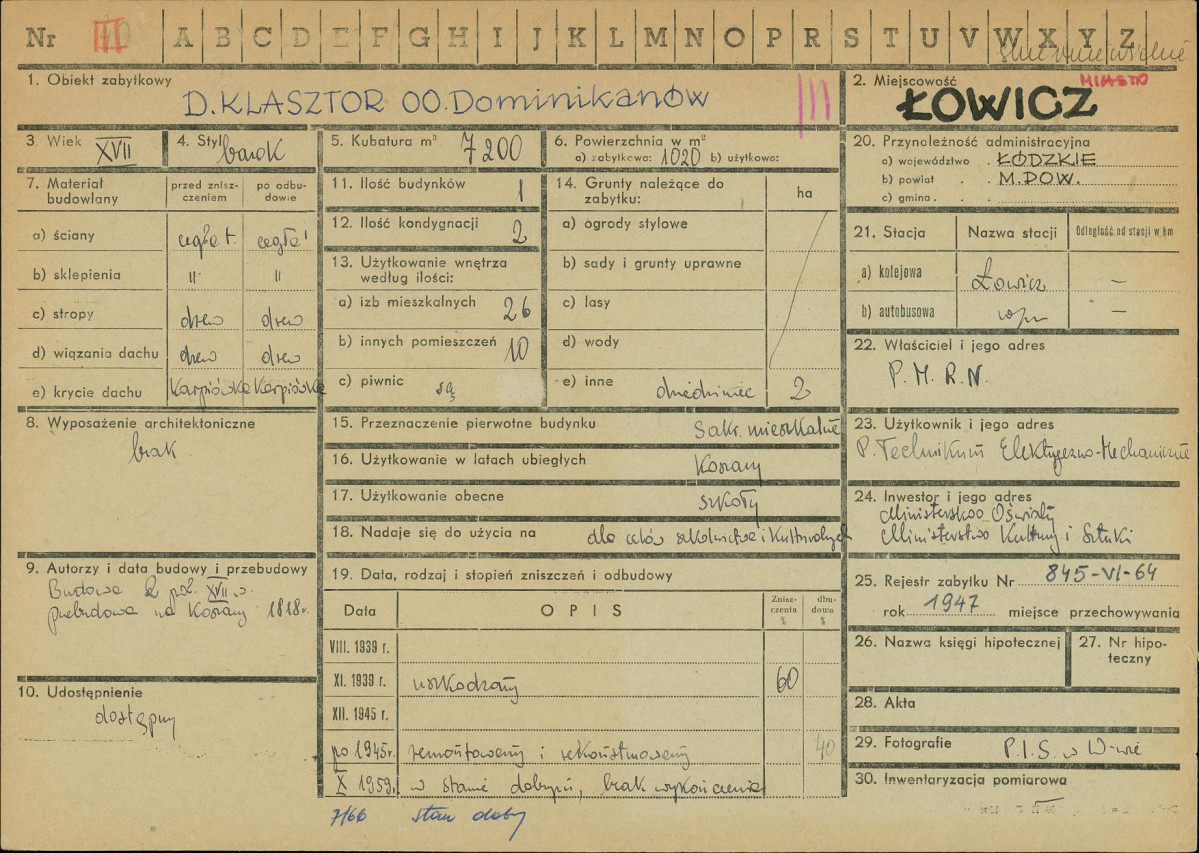 Nr III A B C D E F G H I J K L M N O P R S T U V W X Y Z
1. Obiekt zabytkowy
D. KLASZTOR OO. DOMINIKANÓW
III
2. Miejscowość MIASTO
ŁOWICZ
3. Wiek XVII
4. Styl barok
5. Kubatura m³ 7200
6. Powierzchnia w m²
a) zabytkowa: 1020 b) użytkowa:
7. Materiał budowlany
przed zniszczeniem
po odbudowie
a) ściany cegła cegła
b) sklepienia " "
c) stropy drew drew
d) wiązania dachu drew drew
e) krycie dachu Karpiówka Karpiówka
8. Wyposażenie architektoniczne
brak
9. Autorzy i data budowy i przebudowy
Budowa 2 poł. XVII w.
przebudowa na Koszary 1818 r.
10. Udostępnienie
dostępny
11. Ilość budynków 1
12. Ilość kondygnacji 2
13. Użytkowanie wnętrza
według ilości:
a) izb mieszkalnych 26
b) innych pomieszczeń 10
c) piwnic są
14. Grunty należące do
zabytku: ha
a) ogrody stylowe
b) sady i grunty uprawne
c) lasy
d) wody
e) inne dziedziniec 2
15. Przeznaczenie pierwotne budynku Sakr. mieszkalne
16. Użytkowanie w latach ubiegłych Koszary
17. Użytkowanie obecne szkoły
18. Nadaje się do użycia na dla celów szkolnictwa i Kulturalnych
19. Data, rodzaj i stopień zniszczeń i odbudowy
Data OPIS Zniszczenia % dbudowa %
VIII. 1939 r.
XI. 1939 r. uszkodzany 60
XII. 1945 r.
po 1945 r. remontowany i rekonstruowany 40
X 1959. w stanie dobrym, brak wykończenia
7/66 stan dobry
20. Przynależność administracyjna
a) województwo . ŁÓDZKIE
b) powiat . . M. POW.
c) gmina . .
21. Stacja Nazwa stacji Odległość od stacji w km
a) kolejowa Łowicz —
b) autobusowa —
22. Właściciel i jego adres
P. M. R. N.
23. Użytkownik i jego adres
P. Technikum Elektryczno-Mechaniczne
24. Inwestor i jego adres
Ministerstwo Oświaty
Ministerstwo Kultury i Sztuki
25. Rejestr zabytku Nr 845-VI-64
rok 1947 miejsce przechowywania
26. Nazwa księgi hipotecznej
27. Nr hipoteczny
28. Akta
29. Fotografie P.I.S. w W-wie
30. Inwentaryzacja pomiarowa